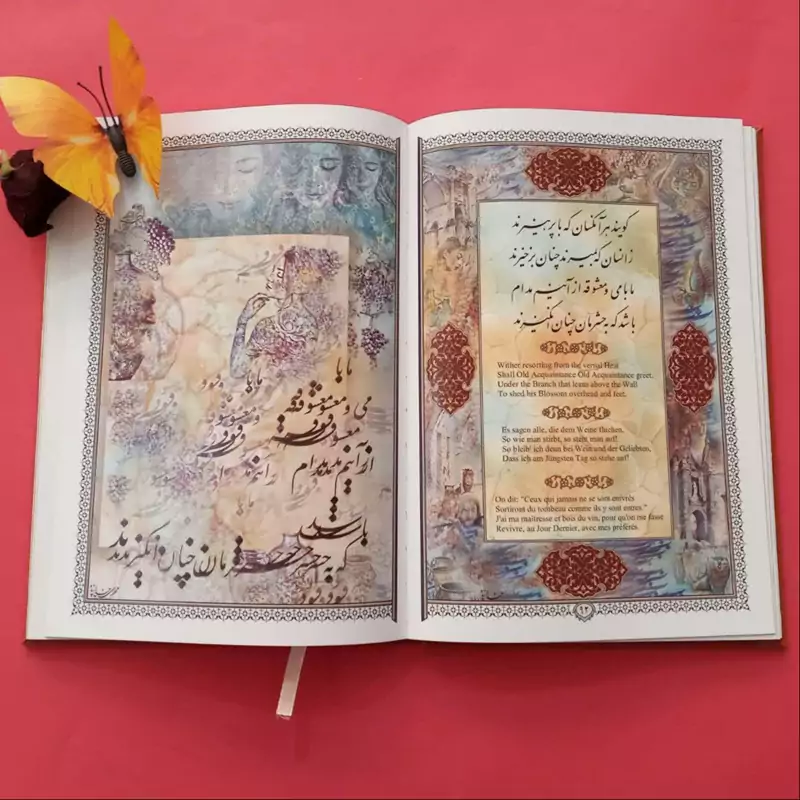 گویند هر آنکسان که با پرهیزند
زانسان که بمیرند چنان برخیزند
ما با می و معشوقه از آنیم مدام
باشد که به حشرمان چنان انگیزند
Wither resorting from the vernal Heat
Shall Old Acquaintance Old Acquaintance greet,
Under the Branch that leans above the Wall
To shed his Blossom overhead and feet.
Es sagen alle, die dem Weine fluchen,
So wie man stirbt, so steht man auf!
So bleib' ich denn bei Wein und der Geliebten,
Dass ich am Jüngsten Tag so stehe auf!
On dit: "Ceux qui jamais ne se sont enivrés
Sortiront du tombeau comme ils y sont entrés."
J'ai ma maitresse et bois du vin, pour qu'on me fasse
Revivre, au Jour Dernier, avec mes préférés.
ما با
می و معشوقه
از آنیم مدام
باشد
که به حشرمان چنان انگیزند